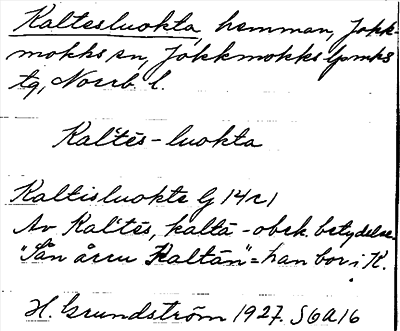 Kaltesluokta, hemman, Jokk-
mokks sn, Jokkmokks lpmks
tg, Norrb. l.
Kaltēs-luokta
Kaltisluokte G 14r1
Av Kaltēs, kalta - obek. betydelse.
"Sån årru Kaltān" = han bor i K.
H. Grundström 1927. S6A16